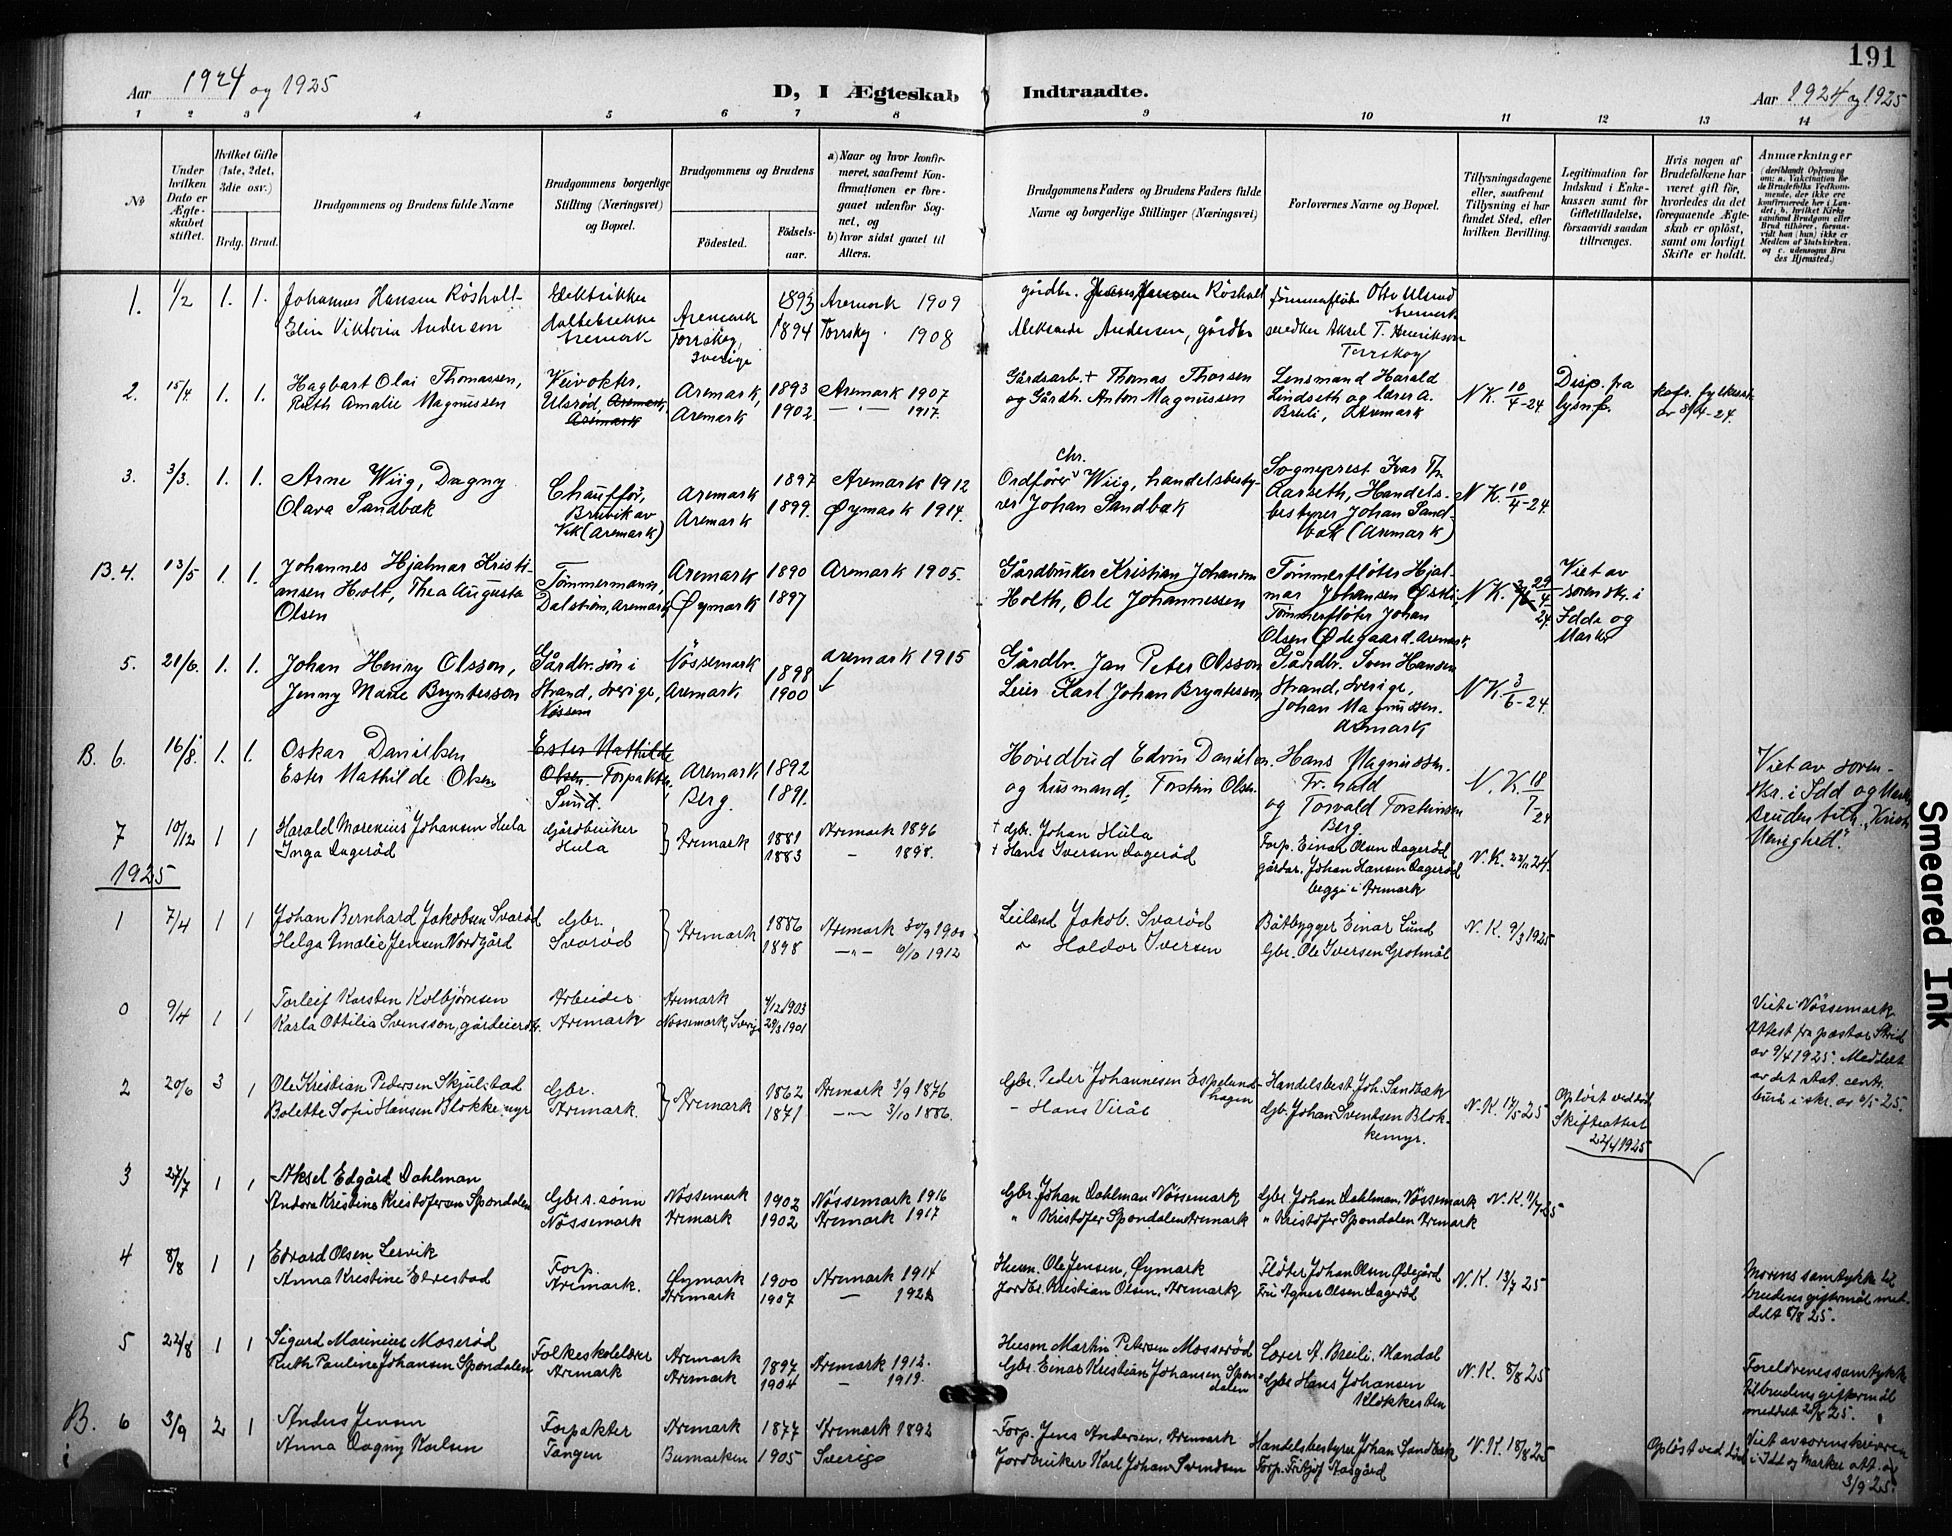 191
Aar 1924 og 1925
D, I Ægteskab Indtraadte.
Aar 1924 og 1925
1 2 3 4 5 6 7 8 9 10 11 12 13 14
No
Under hvilken Dato er Ægteskabet stiftet.
Hvilket Gifte (1ste, 2det, 3die osv.)
Brdg. Brud.
Brudgommens og Brudens fulde Navne
Brudgommens borgerlige Stilling (Næringsvei) og Bopæl.
Brudgommens og Brudens
Fødested.
Fødselsaar.
a) Naar og hvor konfirmeret, saafremt Konfirmationen er foregaaet udenfor Sognet, og
b) hvor sidst gaaet til Alters.
Brudgommens Faders og Brudens Faders fulde Navne og borgerlige Stillinger (Næringsvei)
Forlovernes Navne og Bopæl.
Tillysningsdagene eller, saafremt Tillysning ei har fundet Sted, efter hvilken Bevilling.
Legitimation for Indskud i Enkekassen samt for Giftetilladelse, forsaavidt saadan tiltrænges.
Hvis nogen af Brudefolkene har været gift før, hvorledes da det foregaaende Ægteskab er opløst, samt om lovligt Skifte er holdt.
Anmærkninger (deriblandt Oplysning om: a. Vakcination for de Brudefolks Vedkommende, der ikke ere konfirmerede her i Landet; b. hvilket Kirkesamfund Brudgom eller Brud tilhører, forsaavidt han (hun) ikke er Medlem af Statskirken, og c. udensogns Brudes Hjemsted.)
1. 1/2 1. 1. Johannes Hansen Røsholt 1893 Aremark 1909 gårdbr. Hans Hansen Røsholt Tømmerfløter Otto Ulsrud Aremark
Elin Viktoria Andersen Aremark Torrskog, Sverige 1894 Torrskog 1908 Aleksander Andersen, gårdbr. Aksel T. Henriksson Torrskog
2. 15/4 1. 1. Hagbart Olai Thomassen, Veivokter, Aremark, 1893 Aremark 1907 Gårdsarb. + Thomas Thorsen Lensmand Harald N K. 10/4-24 Disp. fra
Ruth Amalie Magnussen Ulsrød, Aremark, Aremark 1902. — " — 1917. og Gårdb. Anton Magnussen Lindseth og lærer A. Breili, Aremark lysn. av 8/4-24.
3. 3/3. 1. 1. Arne Wiig, Dagny Chauffør, Aremark 1897 Aremark 1912 Ordfører Chr. Wiig, handelsbesty- Sogneprest Ivar Th. N K. 10/4-24.
Olava Sandbæk Bruvik av Vik (Aremark) Aremark 1899. Øymark 1914. rer Johan Sandbæk Aarseth, Handelsbestyrer Johan Sandbæk (Aremark)
B. 4. 13/5 1. 1. Johannes Hjalmar Kristi- Tømmermann, Aremark 1890 Aremark 1905. Gårdbruker Kristian Johansen Tømmerfløter Hjal- N K. 29/4 24. Viet av
ansen Holt, Thea Augusta Dalstiøn, Aremark Øymark 1897 Holth, Ole Johannessen mar Johansen Tømmerfløter Johan sorenskr. i
Olsen Olsen Ødegaard. Aremark, Idde og Marker
5. 21/6. 1. 1. Johan Henry Olsson, Gårdbr. søn i Nössemark 1898 Aremark 1915 Gårdbr. Jan Peter Olsson Gårdbr. Sven Hansen N K. 3/6-24.
Jenny Marie Bryntesson Strand, Sverige, Aremark 1900 Leier Karl Johan Bryntesson Strand, Sverige,
Nössem Johan Magnussen. Aremark
B. 6. 16/8. 1. 1. Oskar Danielsen Ester Mathilde Aremark 1892 Hovedbud Edvin Danielsen. Hans Magnussen. N. K. 18/7-24 Viet av soren-
Ester Mathilde Olsen Olsen Forpakter, Sund. Berg. 1891. og husmand, Torstein Olsen Fr.hald og Torvald Torstensen Berg skr. i Idd og Marker
7 10/12 1 1 Harald Marenius Johansen Hula Gårdbruker Hula } Aremark 1881 Aremark 1896 + Gbr. Johan Hula Forp. Einar Olsen Dagerød N. K. 22/11 24.
Inga Dagerød 1883 — 1898. + Hans Iversen Dagerød gårdar. Johan Hansen Dagerød begge i Aremark
1925
1 7/4 1 1 Johan Bernhard Jakobsen Svarød Gbr. Svarød } Aremark 1886 Aremark 30/9 1900 Leilænd Jakob Svarød Båtbygger Einar Lund N. K. 9/3 1925
Helga Amalie Jensen Nordgård 1898 — " — 6/10 1912 " Haldor Iversen Gbr. Ole Iversen Grotmål
0 9/4 1 1 Torleif Karsten Kolbjørnsen Arbeider Aremark 4/12 1903 Viet i Nössemark.
Karla Ottilia Svensson, gårdeierdt. Aremark Nössemark, Sverige 29/3 1901 Attest fra pastor
av 9/4 1925. Meddelt av det stat. centr. burå i skr. av 6/5 25.
2 20/6 3 1 Ole Kristian Pedersen Skjulstad Gbr. Aremark. } Aremark 1862 Aremark 3/9 1876 Gbr. Peder Johannesen Espelundhagen Handelsbest. Joh. Sandbæk N. K. 17/5 25 Opløst ved død
Bolette Sofie Hansen Blokkemyr 1871 — " — 3/10 1886. — Hans Viråt Gbr. Johan Svendsen Blokkemyr. Skifteattest 22/4 1925
3 27/7 1 1 Aksel Edgård Dahlman Gbrs. sønn Nössemark 1902 Nössemark 1916 Gbr. Johan Dahlman Nössemark Gbr. Johan Dahlman, Nössemark N. K. 1/7 25
Andora Kristine Kristofersen Spondalen Nössemark Aremark 1902 Aremark 1917 " Kristofer Spondalen Aremark " Kristofer Spondalen Aremark
4 8/8 1 1 Edvard Olsen Lervik Forp. Øymark 1900 Aremark 1914 Husm. Ole Jensen, Øymark Fløter Johan Olsen Ødegård N. K. 13/7 25 Morens samtykke til
Anna Kristine Elvestad Aremark. Aremark 1907 — 1922 Jordbr. Kristian Olsen, Aremark Fru Agnes Olsen Dagerød brudens giftermål meddelt 8/8 25.
5 22/8 1 1 Sigurd Marinius Moserød Folkeskolelærer Aremark 1897 Aremark 1912. Husm Martin Petersen Mosserød Lærer A. Breili. Mandal N. K. 8/8 25 Foreldrenes samtykke
Ruth Pauline Johansen Spondalen Aremark Aremark 1904 — 1919. Gbr. Einar Kristian Johansen, Spondalen Gbr Hans Johansen Klokkestuen til brudens giftermål meddelt 22/8 25.
B. 6 3/9 2 1 Anders Jensen Forpakter Aremark 1877 Aremark 1892 Forp. Jens Andersen, Aremark Handelsbestyrer Johan Sandbæk N. K. 18/8 25 Opløst ved død Viet av sorenskriveren
Anna Dagny Karlsen Tangen Bumarken 1905 Sverige Jordbruker Karl Johan Svendsen Forp. Fritjof Aasgård i Idd og Marker att. av 3/9 25.
Smeared Ink